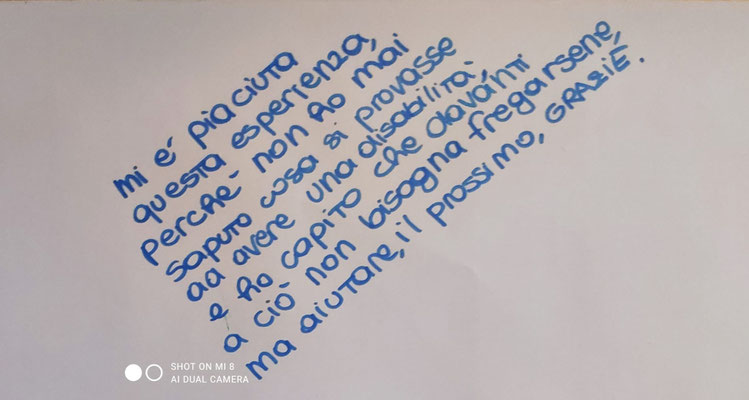 mi é piaciuta
questa esperienza,
perché non ho mai
saputo cosa si provasse
ad avere una disabilità.
e ho capito che davanti
a ciò non bisogna fregarsene,
ma aiutare, il prossimo, GRAZIE.
SHOT ON MI 8
AI DUAL CAMERA